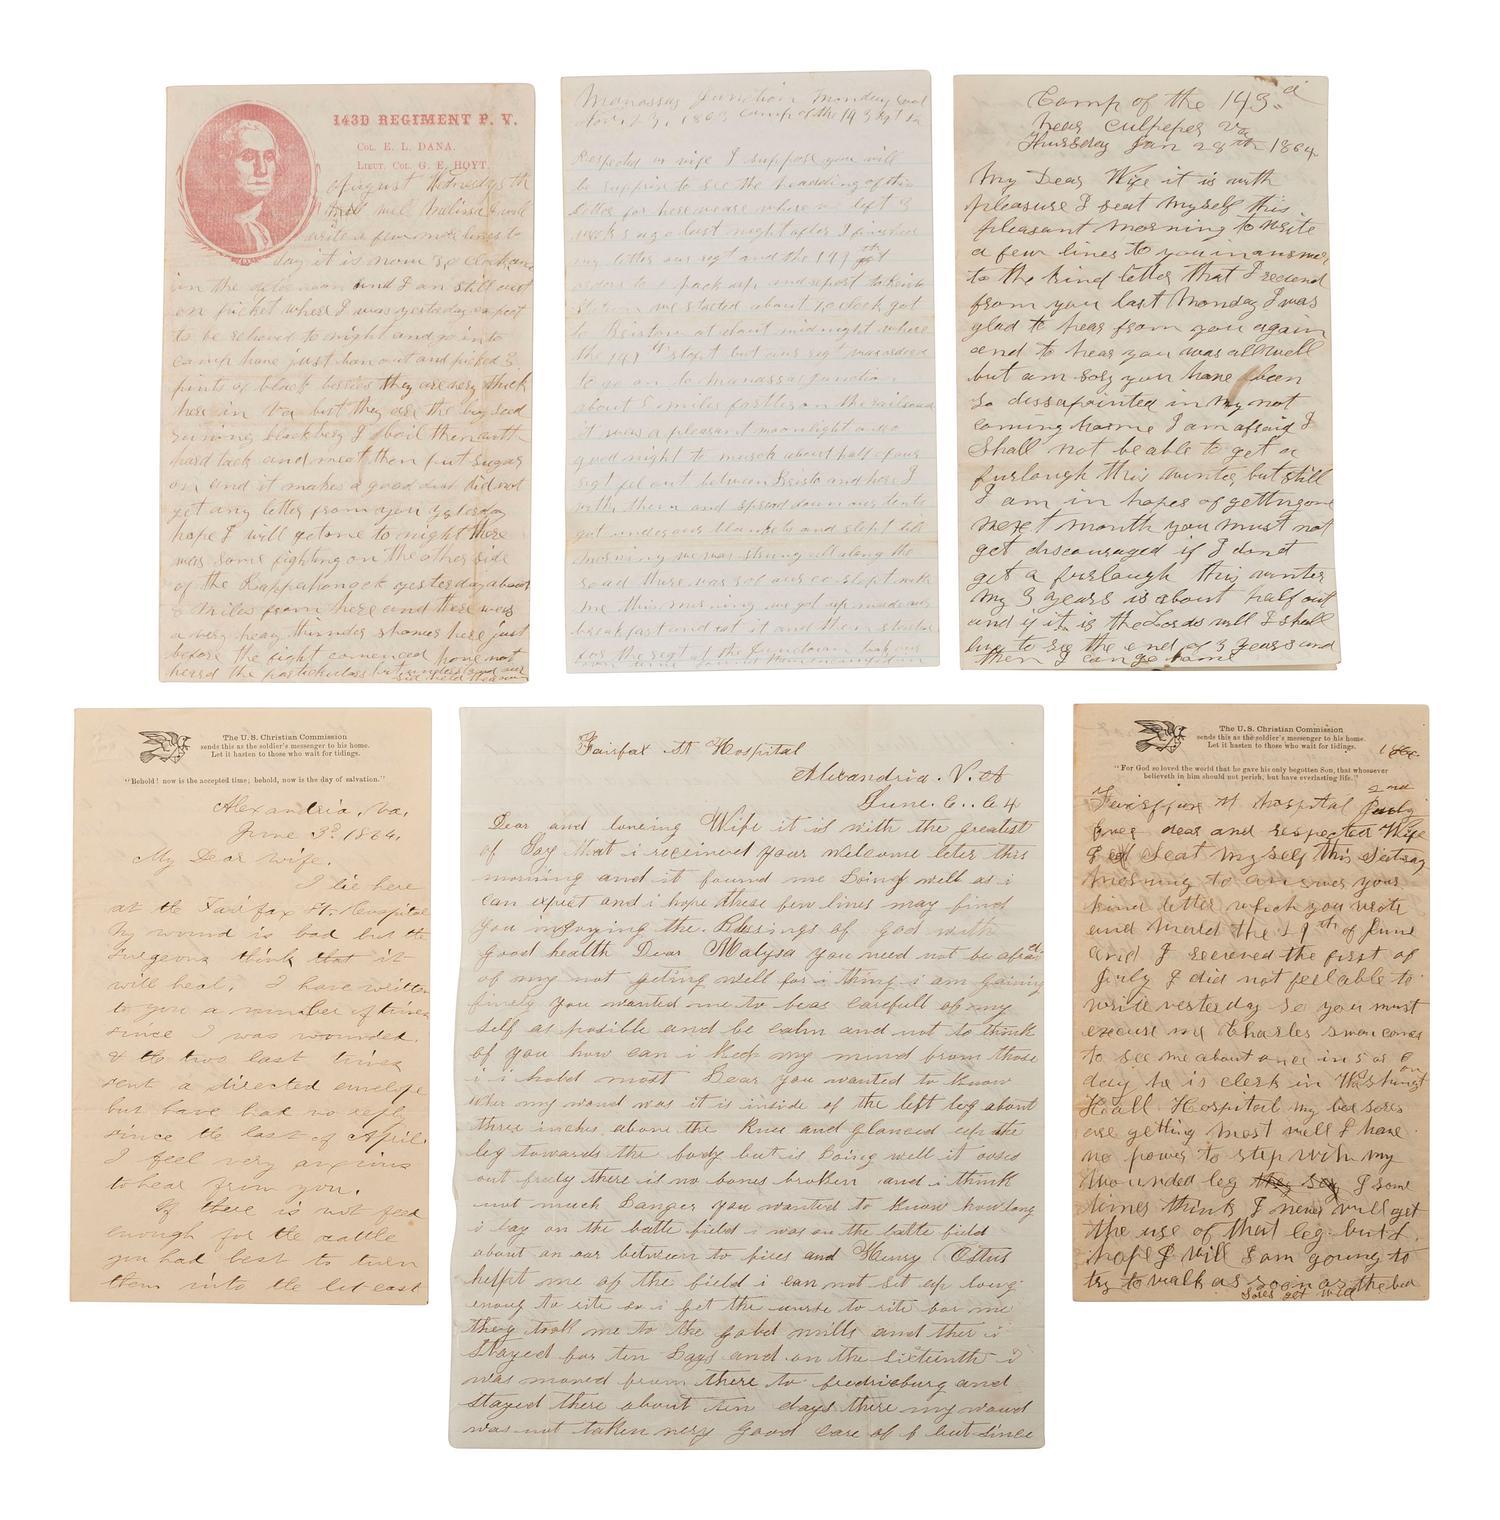 143D REGIMENT P. V.
COL. E. L. DANA.
LIEUT. COL. G. E. HOYT.
August
write a few more lines to
day it is now 3 o clock
in the and I am still out
on picket where I was yesterday expect
to be relieved to night and go in to
camp have just ben out and picked 3
pints of black beries they are very thick
here in Va but they are the
runing blackbery I boil them with
hard tack and meat then put sugar
on and it makes a good did not
get any letter from you yesterday
hope I will get one to night there
was some fighting on the other side
of the Rappahanock yesterday about
miles from here and there was
a very heavy thunder shower here just
before the fight comenced have not
heard the particulars but
Manassas Junction Monday
Nov. 23, 1863 Camp of the 143 Regt
Respected wife I suppose you will
be supprise to see the headding of this
letter for here we are where we left 3
weeks ago last night after I finished
my letter our regt and the 149 got
orders to pack up and report to
we started about o clock got
to Bristow at about midnight where
the 149th stopt but our regt was ordered
to go on to Manassas Junction
about 5 miles farther on the railroad
it was a pleasant moonlight
good night to march about half of our
regt fel out between Bristo and here I
with them and spred down our tents
got under our blankets and slept till
morning we was strung all along the
road there was of our co slept with
me this morning we got up made our
breakfast and eat it and then started
for the regt at the Junction
Camp of the 143d
near Culpeper Va
Thursday Jan 28th 1864
My Dear Wife it is with
pleasure I seat myself this
pleasant morning to write
a few lines to you in answer
to the kind letter that I receved
from you last Monday I was
glad to hear from you again
and to hear you was all well
but am sory you have been
so dissapointed in my not
coming home I am afraid I
shall not be able to get a
furlough this winter but still
I am in hopes of getting one
next month you must not
get discouraged if I dont
get a furlough this winter
my 3 years is about half out
and if it is the Lords will I shall
live to see the end of 3 years and
then I can go home
The U. S. Christian Commission
sends this as the soldier's messenger to his home.
Let it hasten to those who wait for tidings.
"Behold! now is the accepted time; behold, now is the day of salvation."
Alexandria, Va.
June 3d 1864.
My Dear wife.
I lie here
at the Fairfax St. Hospital
My wound is bad but the
Surgeons think that it
will heal. I have written
to you a number of times
since I was wounded.
& the two last times
sent a directed envelope
but have had no reply
since the last of April.
I feel very anxious
to hear from you.
If there is not feed
enough for the cattle
you had best to turn
them into the lot east
Fairfax St Hospital
Alexandria. V. A
June. 6.. 64
Dear and loveing Wife it is with the greatest
of Joy that i received your welcome leter this
morning and it found me Doing well as i
can expect and i hope these few lines may find
you injoying the. Blessings of god with
good health Dear Malysa you need not be afraid
of my not geting well for i thing i am gaining
finely you wanted me to be as carefull of my
self as posible and be calm and not to think
of you how can i keep my mind from those
i i hold most Dear you wanted to know
wher my wound was it is inside of the left leg about
three inches above the Knee and glanced up the
leg towards the body but is Doing well it oosed
out freely there is no bones broken and i think
not much Danger you wanted to know how long
i lay on the battle field i was on the batle field
about an our between to fires and Henry Ostus
helpt me of the field i can not sit up long
enoug to rite so i get the nurse to rite for me
they took me to the gobd mills and ther i
stayed for ten Days and on the sixteenth i
was moved from there to fredricburg and
stayed there about ten days there my wound
was not taken very good care of but since
The U. S. Christian Commission
sends this as the soldier's messenger to his home.
Let it hasten to those who wait for tidings.
"For God so loved the world that he gave his only begotten Son, that whosoever
believeth in him should not perish, but have everlasting life."
Fairffax st hospital July 2nd
Ever dear and respected Wife
I Seat myself this
morning to answer your
kind letter which you wrote
and maild the 29th of June
and I receeved the first of
July I did not feel able to
write yesterday so you must
excuse me Charles Swan comes
to see me about once in 5 or 6
day he is clerk in
Hall Hospital my bed sores
are getting most well I have
no power to step with my
wounded leg I some
times think I never will get
the use of that leg but I
hope I will I am going to
try to walk as soon as the bed
Sores get well